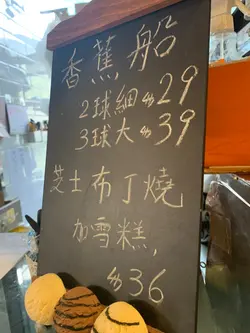 香蕉船
2球細$29
3球大$39
芝士布丁燒
加雪糕,
$36